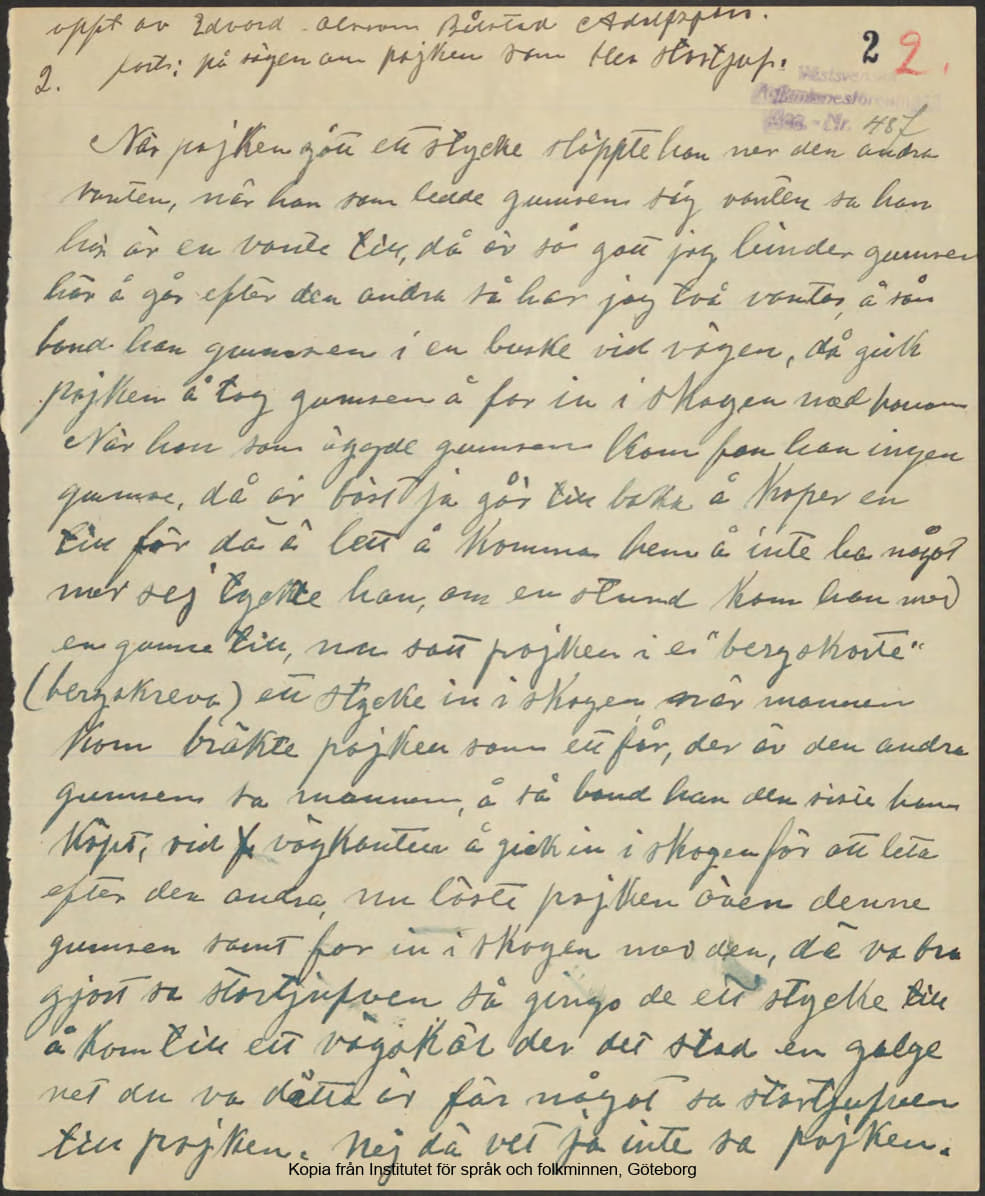 uppt av Edvard Olsson Båstad Adolfsfors.
2. forts: på sägen om pojken som blev stortjuf.
2 2.
Västsvenska
Folkminnesföreningen
Acc. - Nr. 487
När pojken gått ett stycke släppte han ner den andra
vanten, när han som ledde gumsen såg vanten sa han
här är en vante till, då är så gott jag binder gumsen
här å går efter den andra så har jag två vantar, å sån
band han gumsen i en buske vid vägen, då gick
pojken å tog gumsen å for in i skogen med honom
När han som ägde gumsen kom fan han ingen
gumse, då är bäst ja går till baka å köper en
till för dä ä lett å komma hem å inte ha något
mer sej tyckte han, om en stund kom han med
en gumse till, nu satt pojken i ei "bergskorte"
(bergskreva) ett stycke in i skogen når mannen
kom bräkte pojken som ett får, der är den andra
gumsen sa mannen, å så band han den siste han
köpt, vid vägkanten å gick in i skogen för att leta
efter den andra, nu löste pojken även denne
gumsen samt for in i skogen med den, dä va bra
gjort sa stortjufven så gingo de ett stycke till
å kom till ett vägskäl der det stod en galge
vet du va dätta är för något sa stortjufven
till pojken. Nej dä vet ja inte sa pojken.
Kopia från Institutet för språk och folkminnen, Göteborg